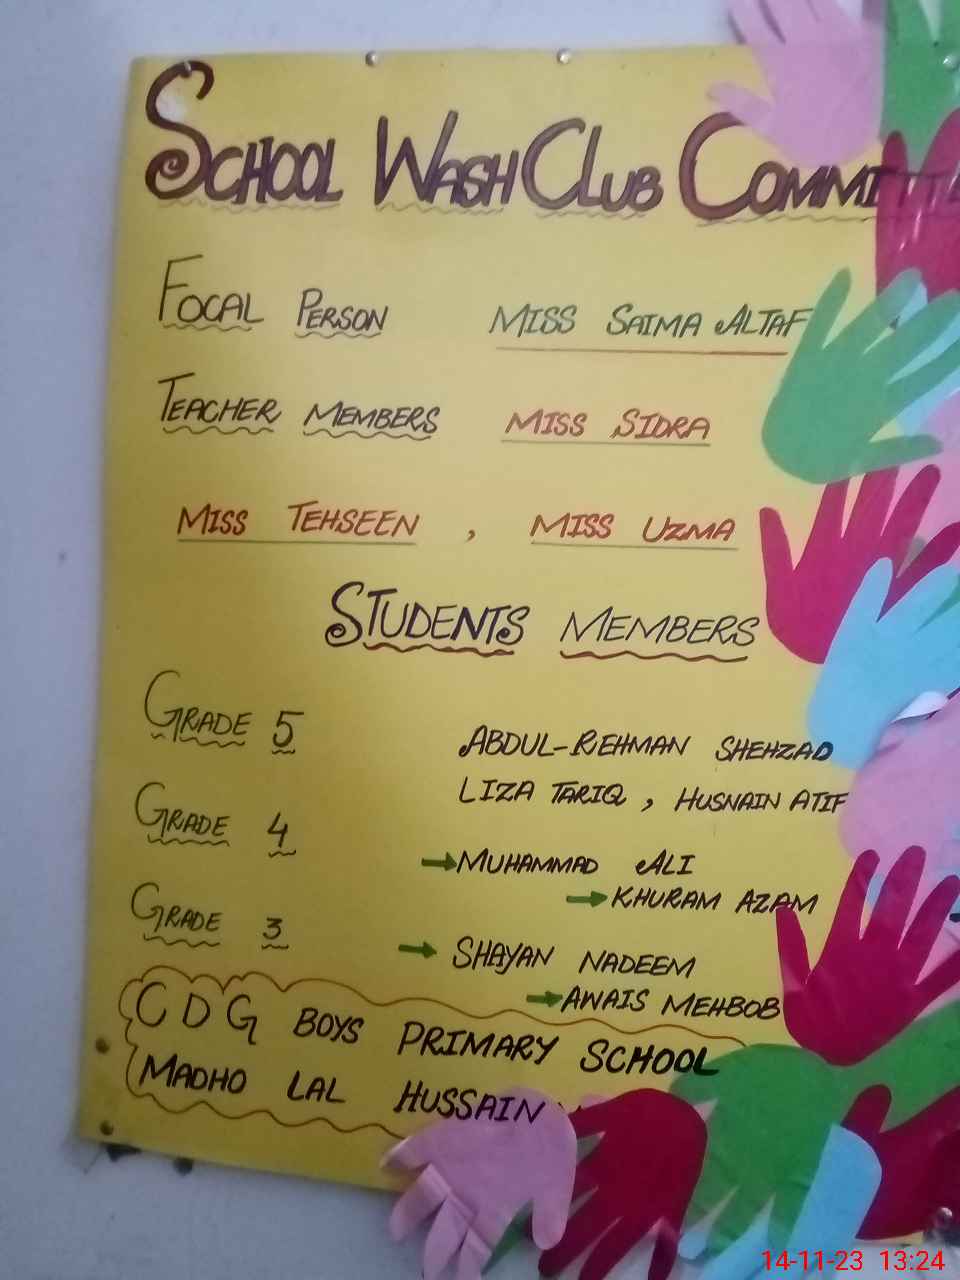 SCHOOL WASH CLUB COMMITTE
FOCAL PERSON MISS SAIMA ALTAF
TEACHER MEMBERS MISS SIDRA
MISS TEHSEEN , MISS UZMA
STUDENTS MEMBERS
GRADE 5 ABDUL-REHMAN SHEHZAD
LIZA TARIQ , HUSNAIN ATIF
GRADE 4 →MUHAMMAD ALI
→KHURAM AZAM
GRADE 3 → SHAYAN NADEEM
→AWAIS MEHBOB
CDG BOYS PRIMARY SCHOOL
MADHO LAL HUSSAIN
14-11-23 13:24